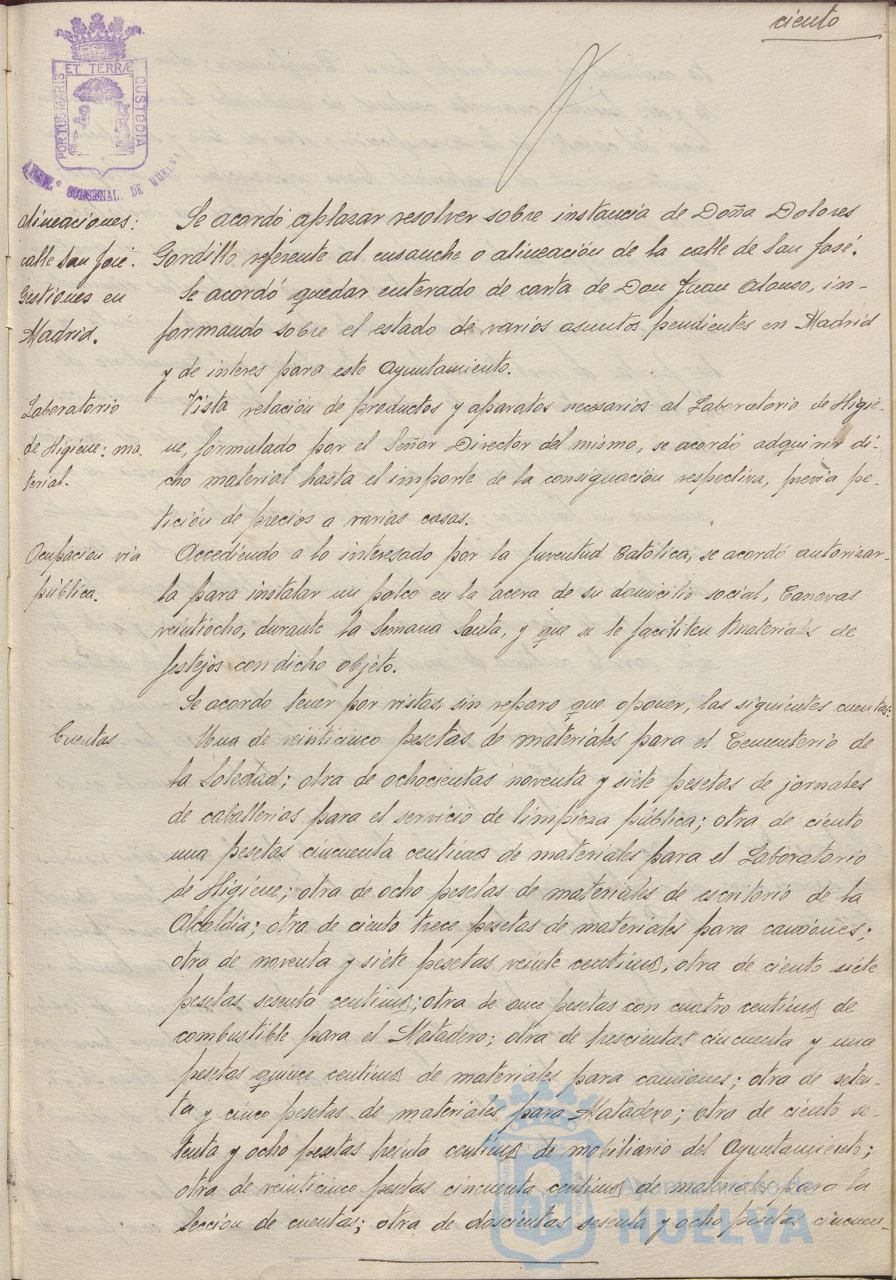 ciento
PORTUS MARIS ET TERRÆ CUSTODIA
MUNICIPAL. DE HUELVA
Alineaciones:
calle San José.
Se acordó aplazar resolver sobre instancia de Doña Dolores
Gordillo referente al ensanche o alineación de la calle de San José.
Gestiones en
Madrid.
Se acordó quedar enterado de carta de Don Juan Alonso, in-
formando sobre el estado de varios asuntos pendientes en Madrid
y de interes para este Ayuntamiento.
Laboratorio
de Higiene: ma-
terial.
Vista relación de productos y aparatos necesarios al Laboratorio de Higie-
ne, formulado por el Señor Director del mismo, se acordó adquirir di-
cho material hasta el importe de la consignación respectiva, previa pe-
tición de precios a varias casas.
Ocupación via
pública.
Accediendo a lo interesado por la Juventud Católica, se acordó autorizar-
la para instalar un palco en la acera de su domicilio social, Canovas
veintiocho, durante la Semana Santa, y que se le faciliten materiales de
festejos con dicho objeto.
Se acordo tener por vistas, sin reparo que oponer, las siguientes cuentas:
Cuentas
Una de veinticinco pesetas de materiales para el Cementerio de
la Soledad; otra de ochocientas noventa y siete pesetas de jornales
de caballerias para el servicio de limpieza pública; otra de ciento
una pesetas cincuenta centimos de materiales para el Laboratorio
de Higiene; otra de ocho pesetas de materiales de escritorio de la
Alcaldia; otra de ciento trece pesetas de materiales para camiones;
otra de noventa y siete pesetas veinte centimos, otra de ciento siete
pesetas sesenta centimos; otra de once pesetas con cuatro centimos de
combustible para el Matadero; otra de trescientas cincuenta y una
pesetas quince centimos de materiales para camiones; otra de seten-
ta y cinco pesetas de materiales para Matadero; otra de ciento se-
tenta y ocho pesetas treinta centimos de mobiliario del Ayuntamiento;
otra de veinticinco pesetas cincuenta centimos de materiales para la
Sección de cuentas; otra de doscientas sesenta y ocho pesetas cincuen-
Ayuntamiento de
HUELVA